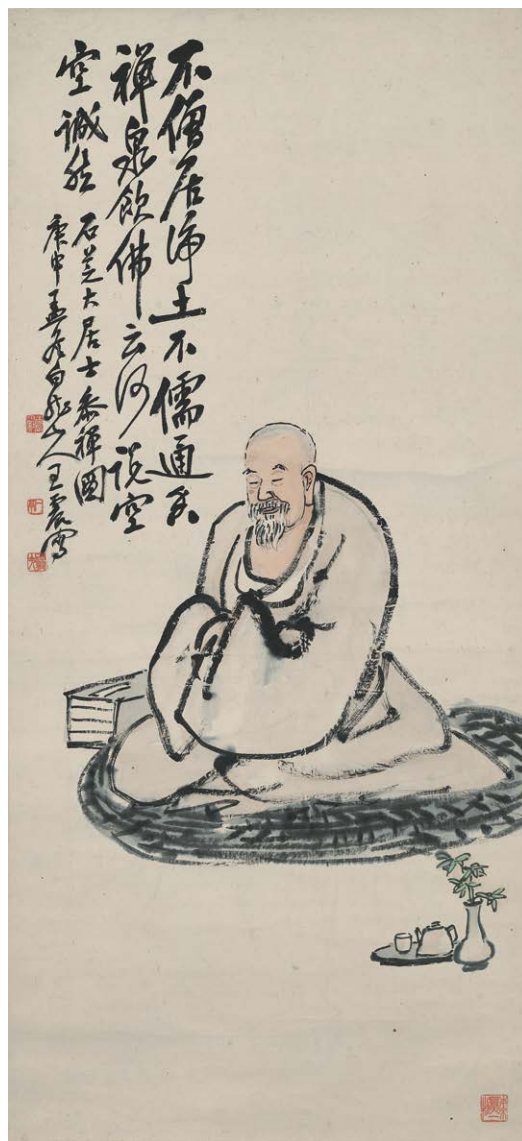 不僧居淨土不儒通玄
禪泉飲佛云何說空
空誠然
石芝大居士叅禪圖
庚申孟冬白龍山人王震寫